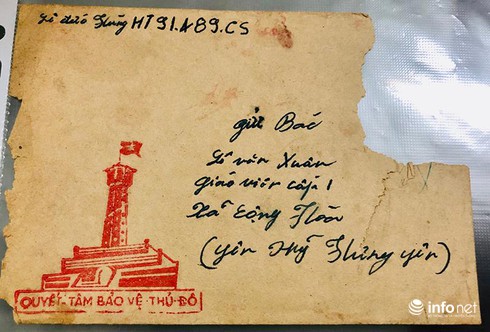 Lê đức Hưng HT 91.A89.CS
gửi Bác
Lê văn Xuân
giáo viên cấp 1
Xã Cộng Hòa
(Yên Mỹ Hưng yên)
QUYẾT-TÂM BẢO VỆ THỦ-ĐÔ
infonet